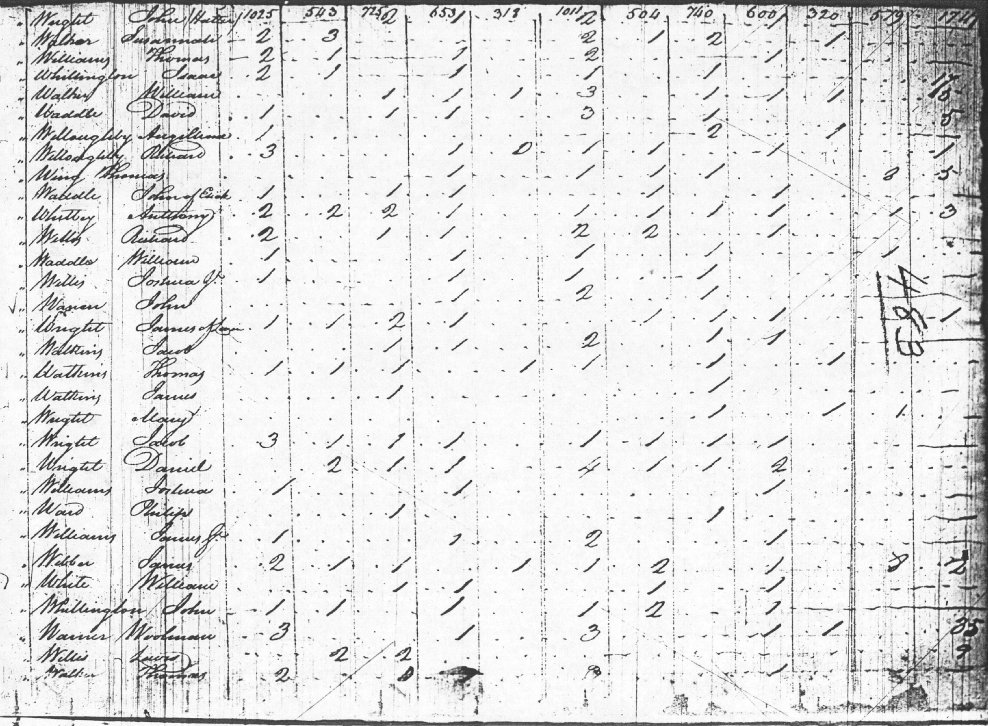 " Wright John (Hatter) 1025 543 725 2 653 1 313 1011 2 504 740 600 1 320 579 174
" Walker Susannah 2 3 2 1 2 1
" Williams Thomas 2 1 1 2 1
" Whittington Isaac 2 1 1 1 1
" Walker William 1 1 1 3 1 1 1
" Waddle David 1 1 1 3 1
" Willoughby 1 2 1
" Willoughby Richard 3 1 1 1 1 1
" Wing Thomas 1 1 1 1 5
" Waddle John of 1 1 1 1 1 1 1
" Whitby Anthony 2 2 2 1 1 1 1 1 1 3
" Willis Richard 2 1 1 2 2 1
" Waddle William 1 1 1 1 1
" Willis Joshua Jr. 1 1 1 1
" Warren John 1 2 1
" Wright James of 1 1 2 1 1 1 1 1
" Watkins Jacob 1 1 2 1 1
" Watkins Thomas 1 1 1 1 1 1 1
" Watkins James 1 1
" Wright Mary 1 1 1
" Wright Jacob 3 1 1 1 1 1 1 1
" Wright Daniel 2 1 1 4 1 1 2
" Williams Joshua 1 1 1
" Ward Philip 1 1
" Williams James Jr 1 1 2 1
" Webber James 2 1 1 1 1 2 1 8
" White William 1 1 1 1
" Whittington John 1 1 1 1 2 1
" Warner Woolman 3 1 3 1 1 35
" Willis Lewis 2 2 9
" Walker Thomas 2 1
483